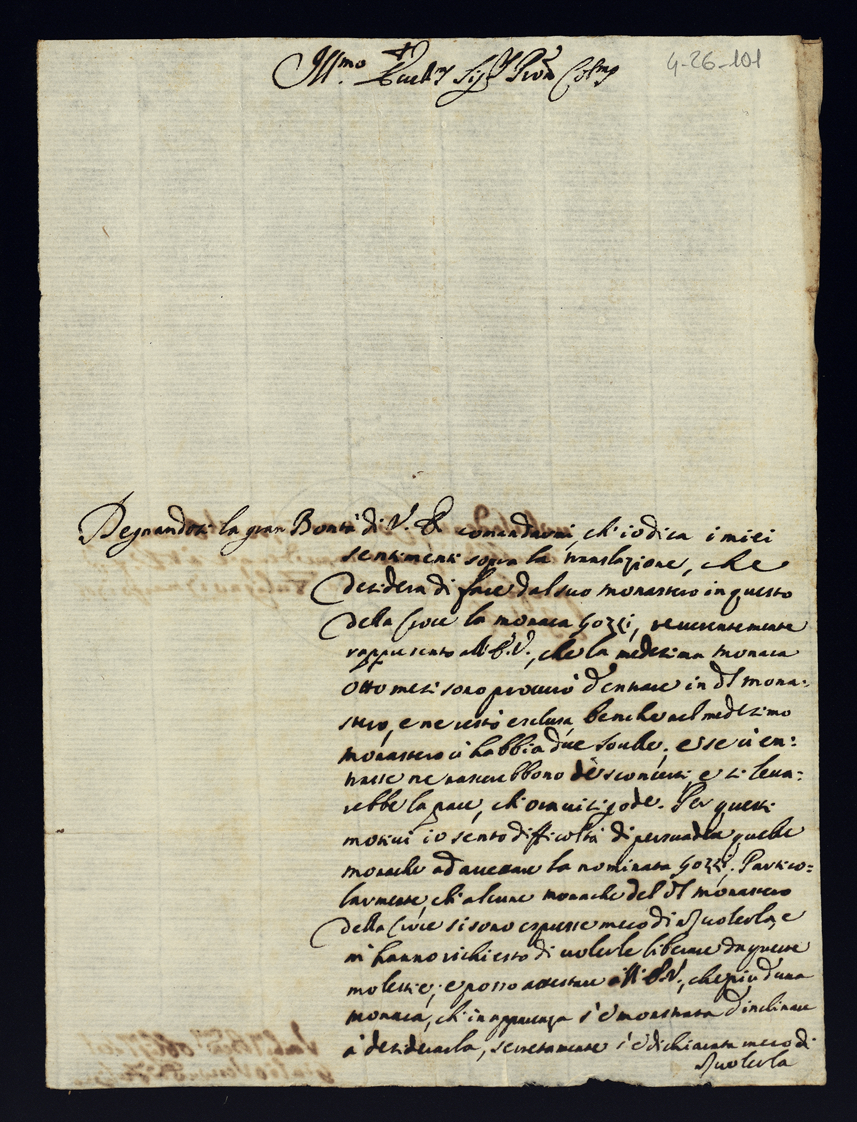 4-26-101
Ill.mo Sig.r Pron Col.mo
Degnandosi la gran Bontà di V. E. comandarmi, ch'io dica i miei
sentimenti sopra la translazione, che
desidera di fare dal suo monastero in questo
della Croce la monaca Gozzi, reverentemente
rappresento all'E.V., che la medesima monaca
otto mesi sono procurò d'entrare in d.º mona-
stero, e ne restò esclusa benche nel medesimo
monastero ci habbia due sorelle, e se ci en=
trasse ne nascerebbono de sconcerti, e si leva=
rebbe la pace, ch'ora ivi si gode. Per questi
motivi io sento difficoltà di persuadere quelle
monache ad accettare la nominata Gozzi. Partico=
larmente, ch'alcune monache del d.º monastero
della Croce si sono espresse meco di n volerla, e
m'hanno richiesto di volerle liberare da queste
molestie; e posso attestare all'E.V., che più d'una
monaca, ch'in apparenza s'è monstrata d'inclinare
à desiderarla, secretamente s'è dichiarata meco di
n volerla